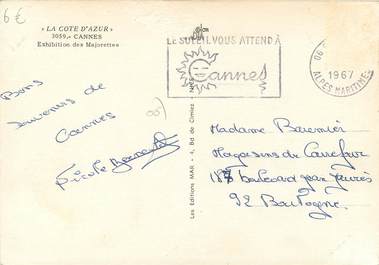 6€
« LA COTE D'AZUR »
3059.- CANNES
Exhibition des Majorettes
LE SOLEIL VOUS ATTEND À
Cannes
06
1967
ALPES MARITIMES
Bons
souvenirs de
Cannes
Nicole
Les Editions MAR - 4, Bd de Cimiez
Madame
Magasins du Carrefour
187 boulevard Jean Jaurès
92 Boulogne